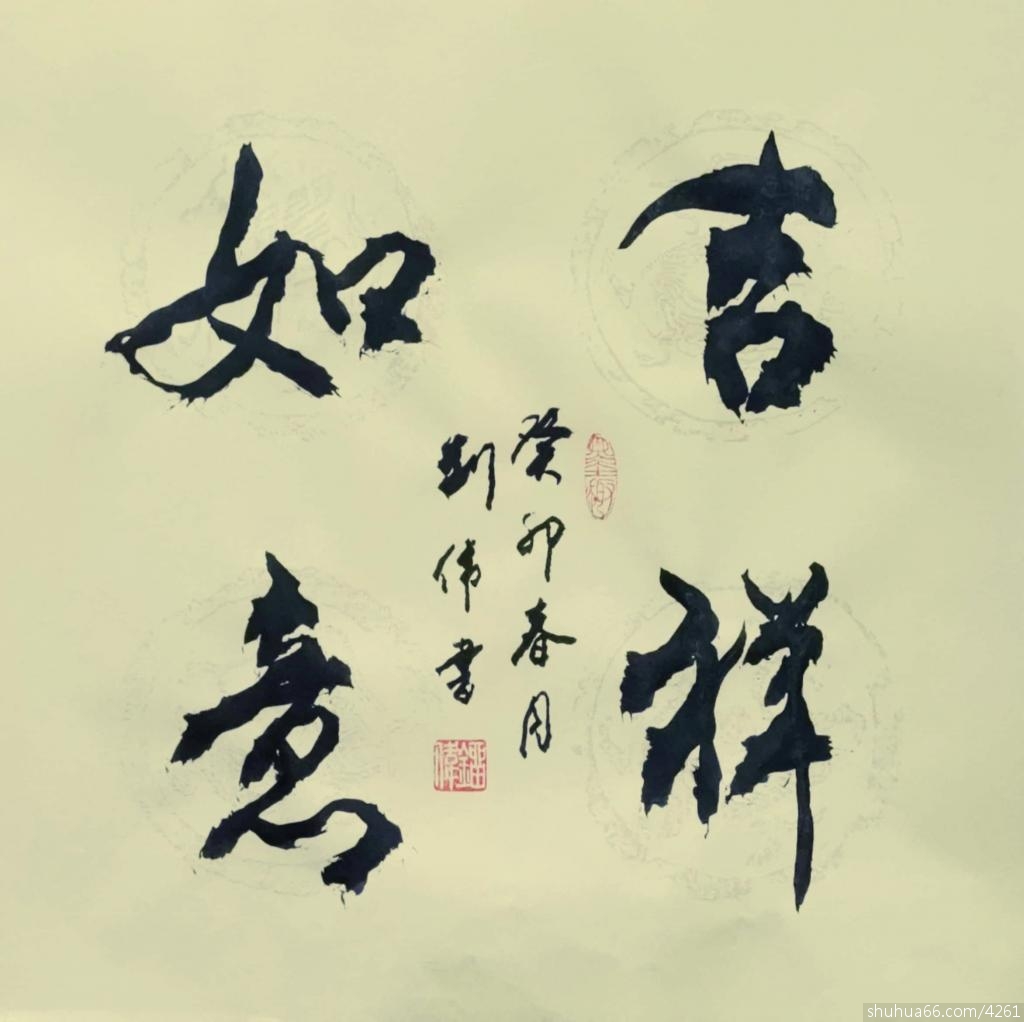 吉祥
如意
癸卯春月
刘伟书
鎦偉
shuhua66.com/4261